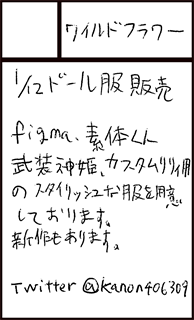 ワイルドフラワー
1/12ドール服販売
figma、素体くん
武装神姫、カスタムリリィ用
のスタイリッシュな服を用意
しております。
新作もあります。
Twitter @kanon406309